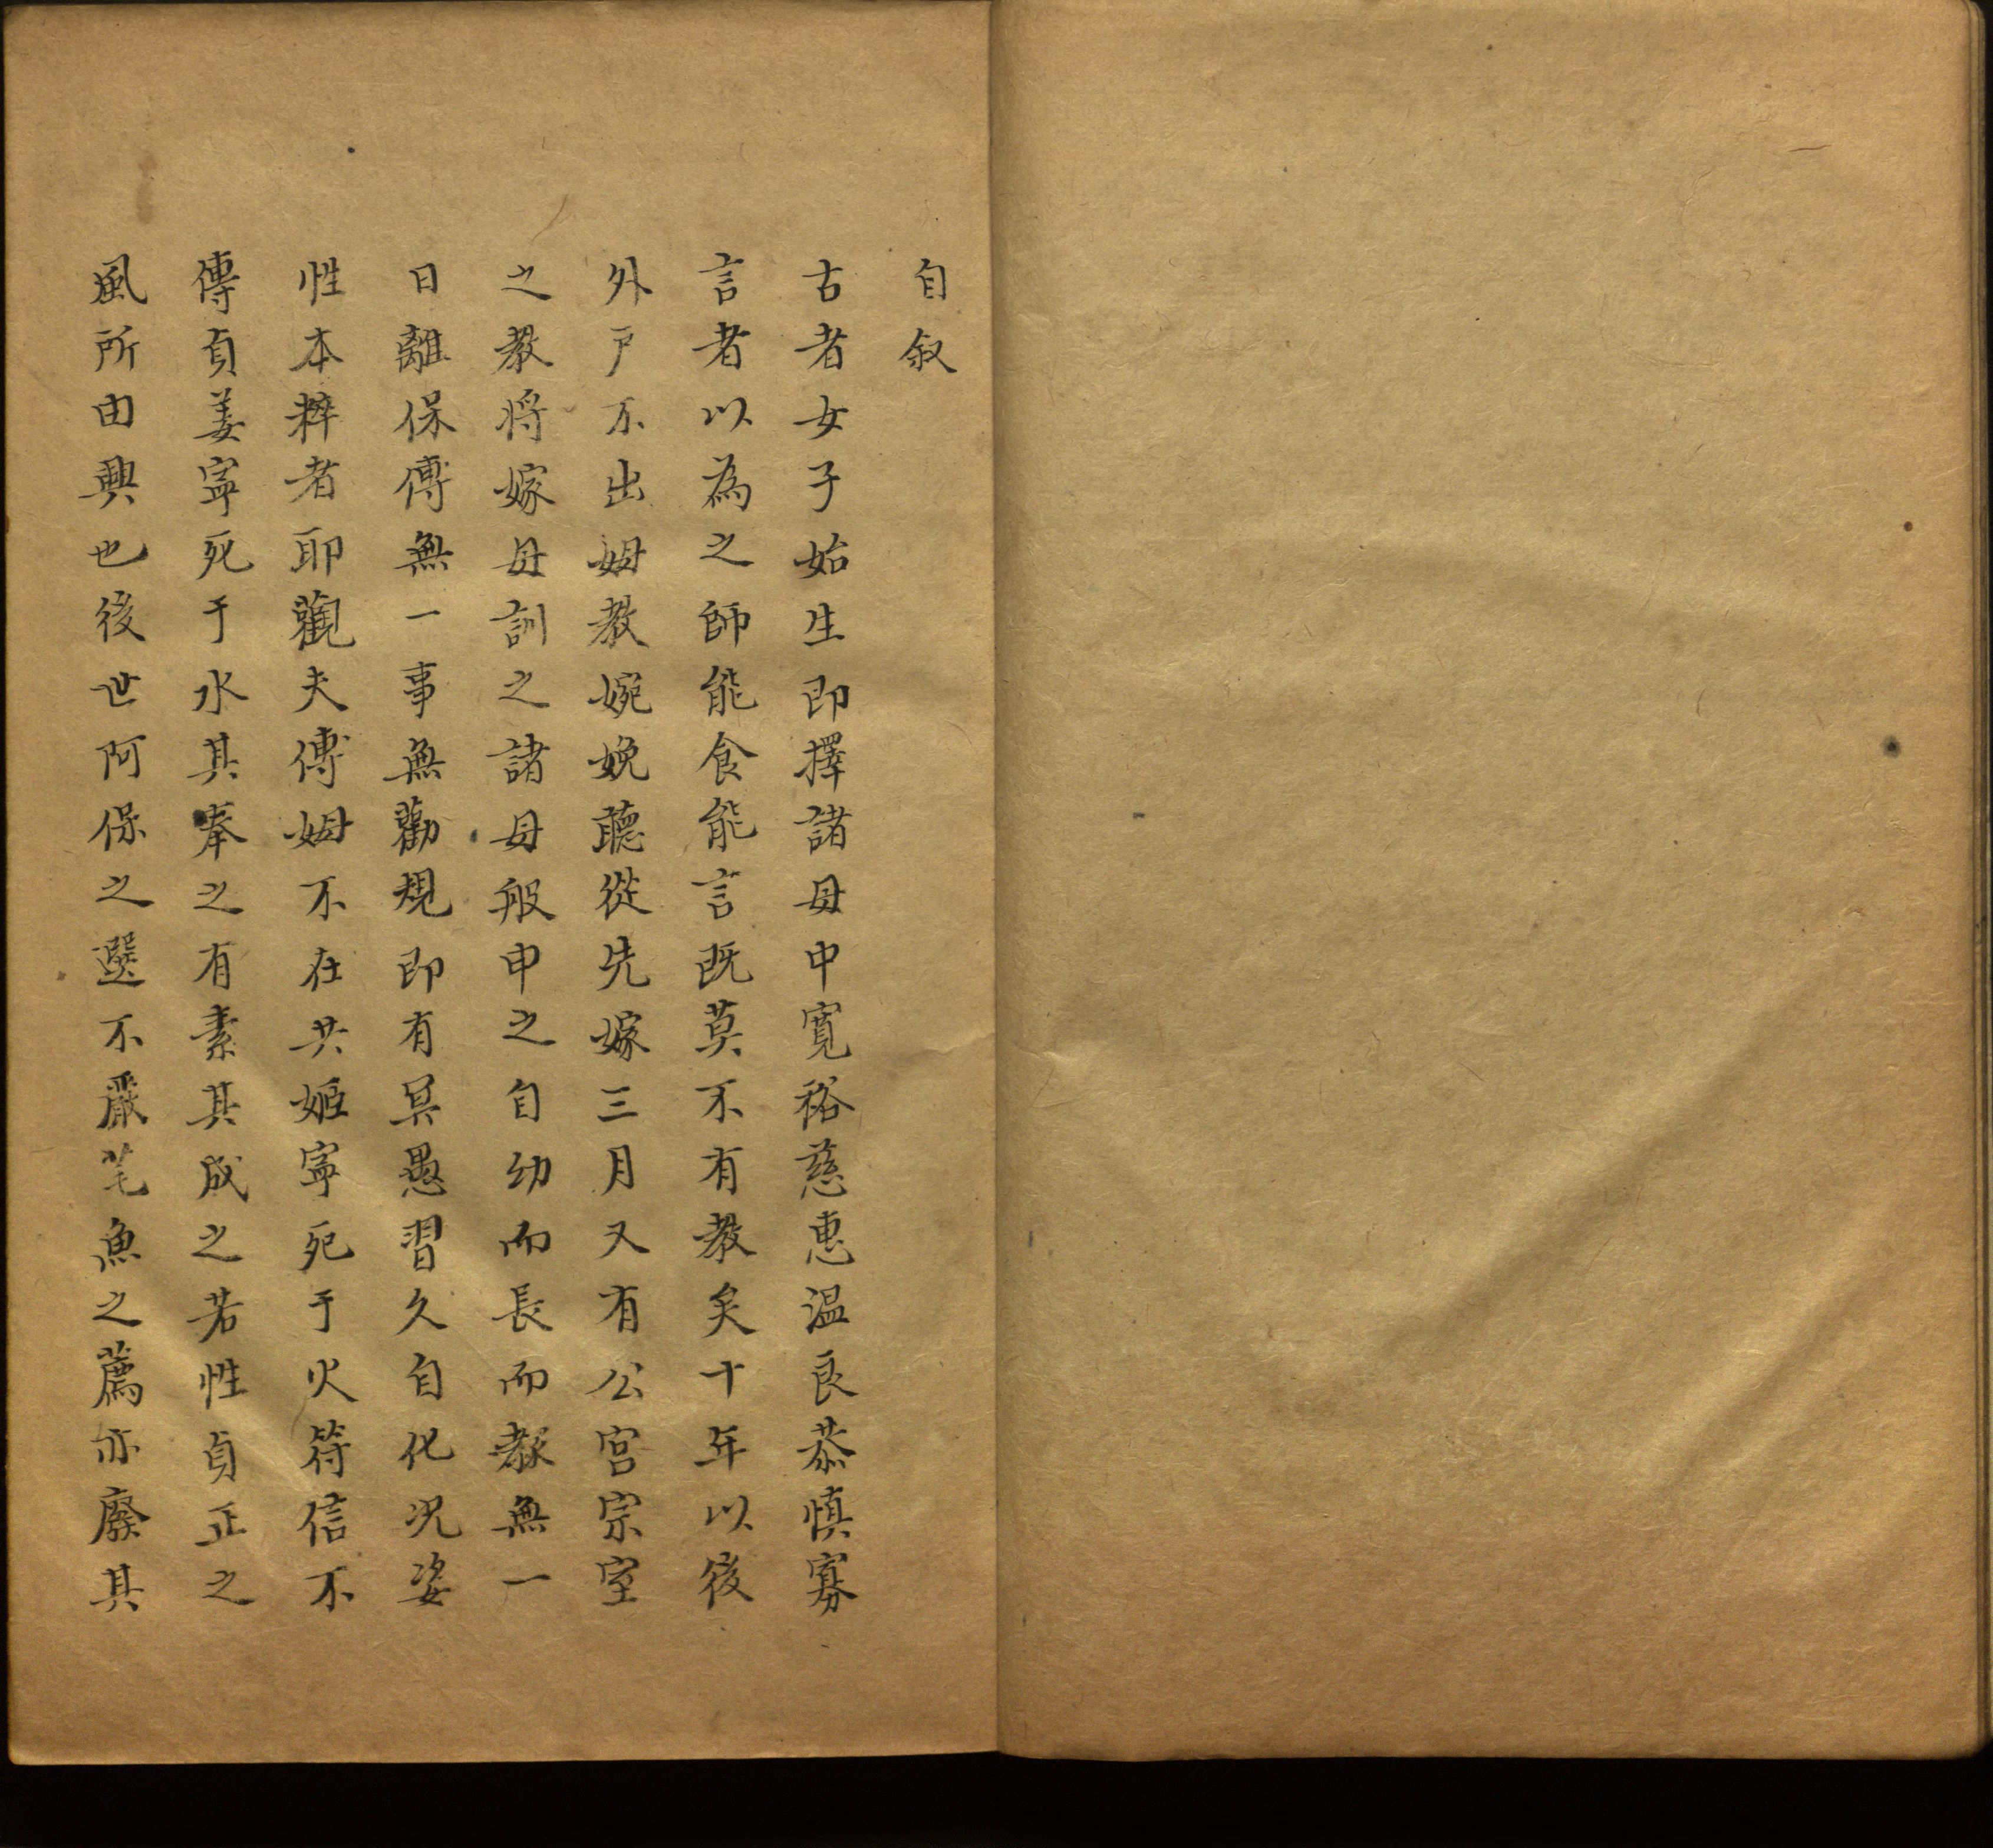 自叙
古者女子始生即擇諸母中寬裕慈惠温良恭慎寡
言者以為之師能食能言既莫不有教矣十年以後
外戸不出姆教婉娩聽從先嫁三月又有公宮宗室
之教将嫁母訓之諸母般申之自幼而長而嫠無一
日離保傅無一事無勸規即有冥愚習久自化况姿
性本粹者耶觀夫傅姆不在共姬寧死于火符信不
傳貞姜寧死于水其奉之有素其成之若性貞正之
風所由興也後世阿保之選不嚴芼魚之薦亦廢其